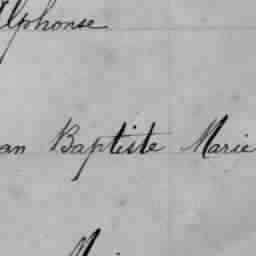 Alphonse
an Baptiste Marie